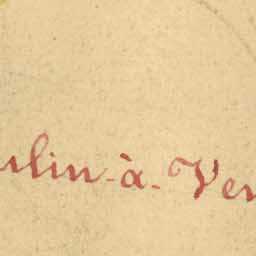 ulin-à-Ver